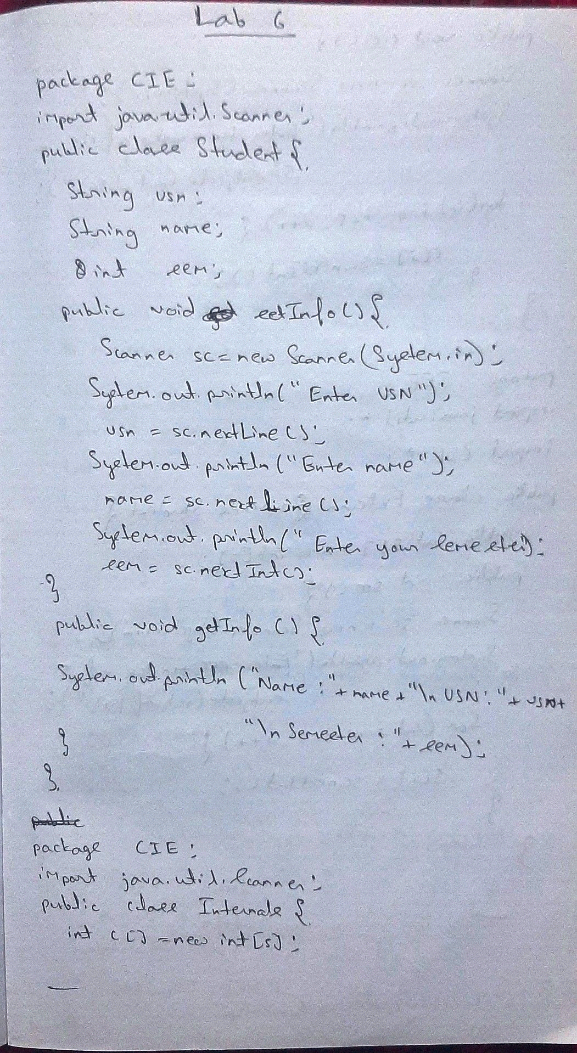 Lab 6
package CIE;
import java.util.Scanner;
public class Student {
String usn;
String name;
int sem;
public void setInfo() {
Scanner sc = new Scanner(System.in);
System.out.println("Enter USN");
usn = sc.nextLine();
System.out.println("Enter name");
name = sc.nextLine();
System.out.println("Enter your semester);
sem = sc.nextInt();
}
public void getInfo() {
System.out.println("Name:"+name+"\n USN:"+usn+
"\n Semester:"+sem);
}
}
public
package CIE;
import java.util.Scanner;
public class Internals {
int c[] = new int[5];